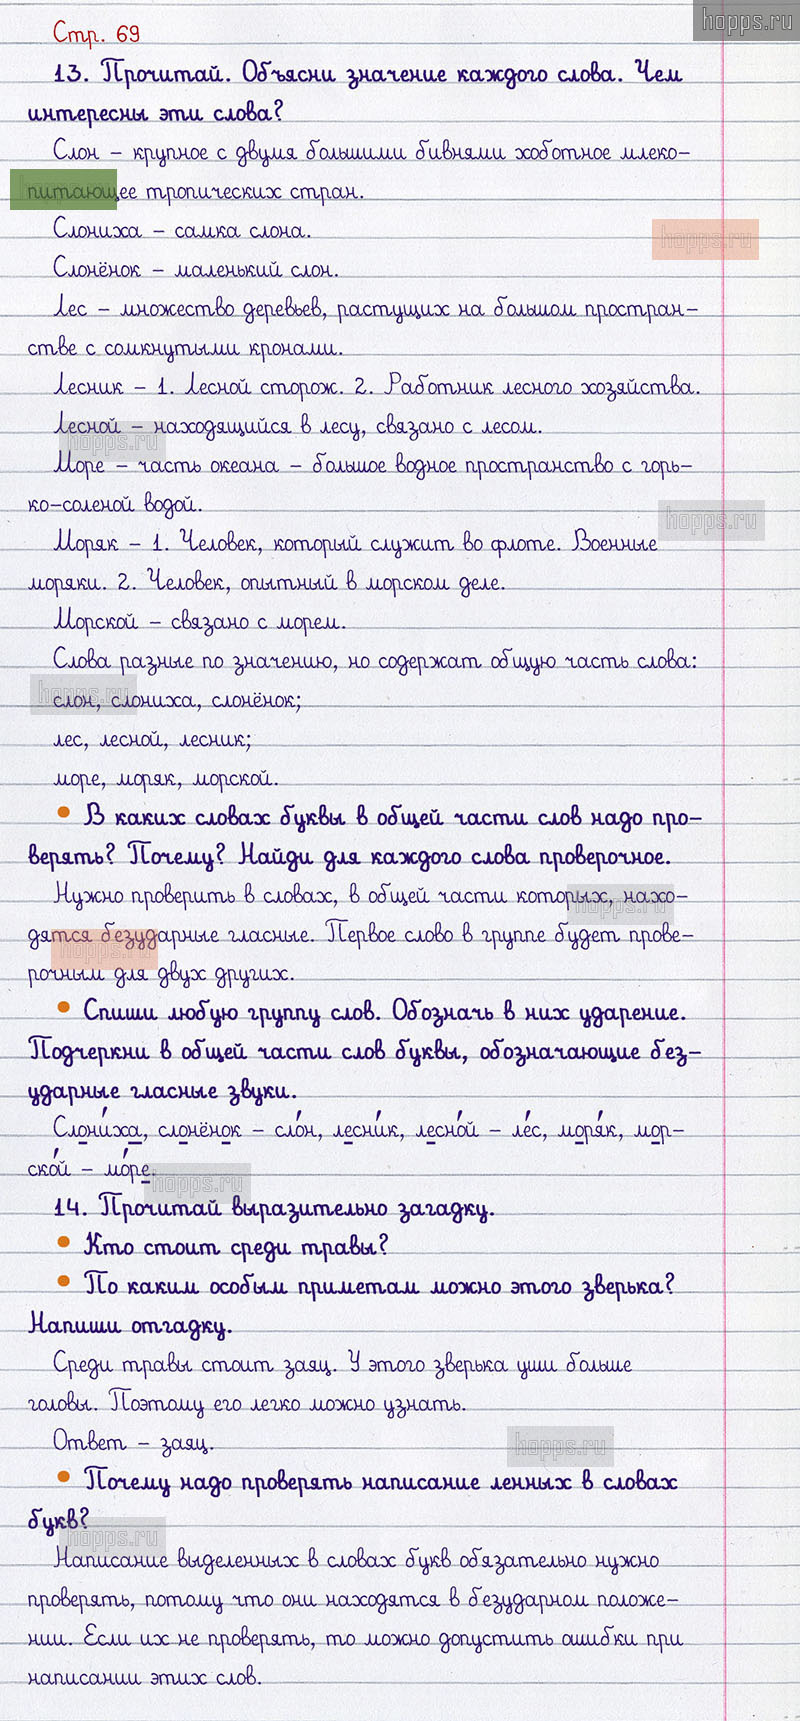 hopps.ru
Стр. 69
13. Прочитай. Объясни значение каждого слова. Чем
интересны эти слова?
Слон – крупное с двумя большими бивнями хоботное млеко-
питающее тропических стран.
Слониха – самка слона.
hopps.ru
Слонёнок – маленький слон.
Лес – множество деревьев, растущих на большом простран-
стве с сомкнутыми кронами.
Лесник – 1. Лесной сторож. 2. Работник лесного хозяйства.
Лесной – находящийся в лесу, связано с лесом.
hopps.ru
Море – часть океана – большое водное пространство с горь-
ко-соленой водой.
hopps.ru
Моряк – 1. Человек, который служит во флоте. Военные
моряки. 2. Человек, опытный в морском деле.
Морской – связано с морем.
Слова разные по значению, но содержат общую часть слова:
hopps.ru
слон, слониха, слонёнок;
лес, лесной, лесник;
море, моряк, морской.
• В каких словах буквы в общей части слов надо про-
верять? Почему? Найди для каждого слова проверочное.
Нужно проверить в словах, в общей части которых, нахо-
hopps.ru
дятся безударные гласные. Первое слово в группе будет прове-
hopps.ru
рочным для двух других.
• Спиши любую группу слов. Обозначь в них ударение.
Подчеркни в общей части слов буквы, обозначающие без-
ударные гласные звуки.
Слони́ха, слонёнок – сло́н, лесни́к, лесно́й – ле́с, моря́к, мор-
ско́й – мо́ре.
hopps.ru
14. Прочитай выразительно загадку.
• Кто стоит среди травы?
• По каким особым приметам можно этого зверька?
Напиши отгадку.
Среди травы стоит заяц. У этого зверька уши больше
головы. Поэтому его легко можно узнать.
Ответ – заяц.
hopps.ru
• Почему надо проверять написание ленных в словах
букв?
hopps.ru
Написание выделенных в словах букв обязательно нужно
проверять, потому что они находятся в безударном положе-
нии. Если их не проверять, то можно допустить ошибки при
написании этих слов.